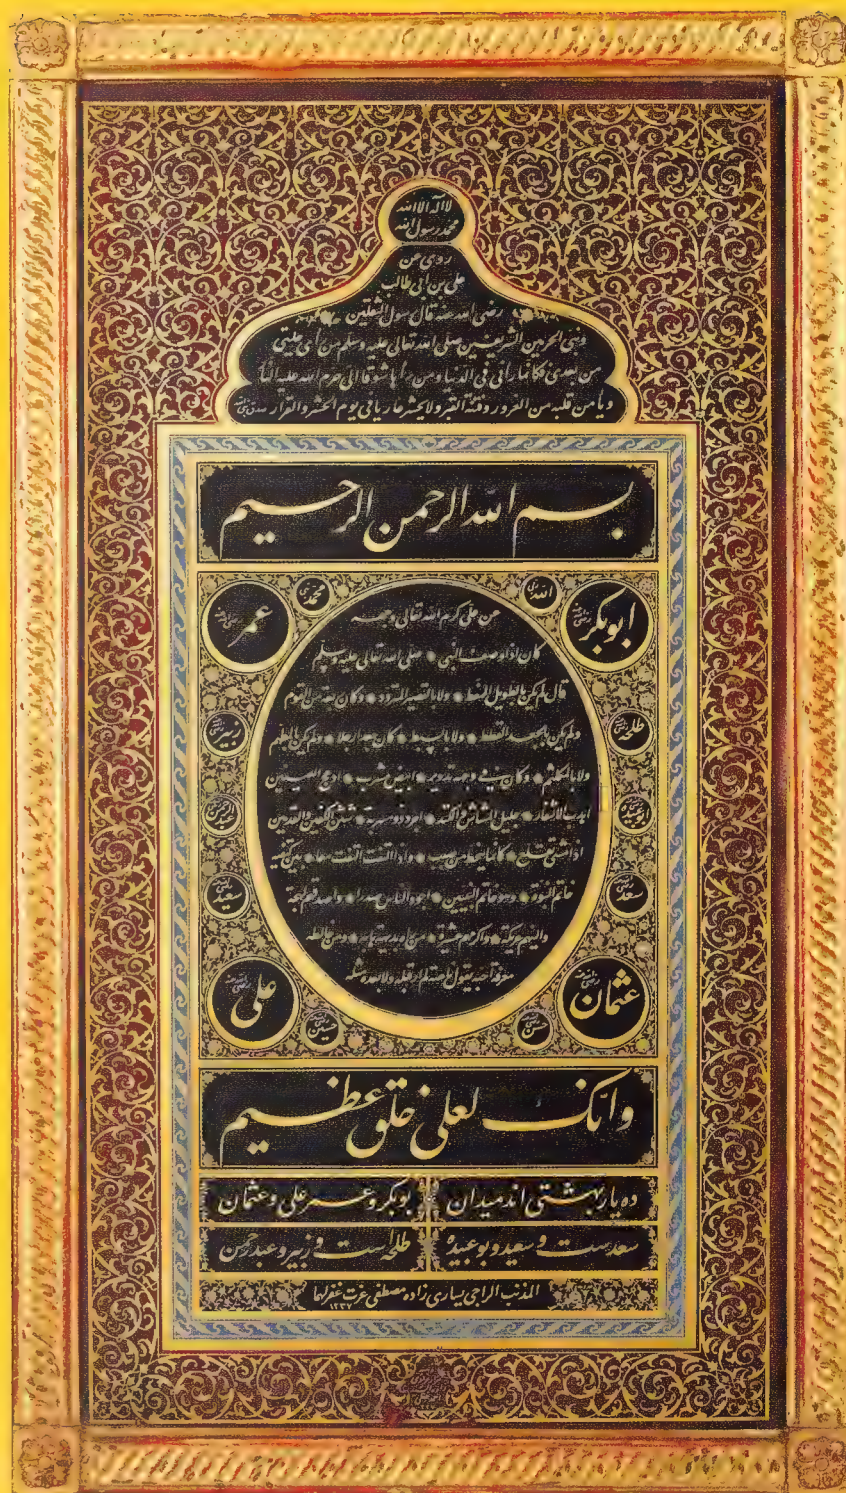 لا اله الا الله
محمد رسول الله
روى عن
على بن ابى طالب
رضى الله عنه قال رسول الثقلين
ونبى الحرمين الشريفين صلى الله تعالى عليه وسلم من راى حليتى
من بعدى فكانما رانى فى الدنيا ومن راها شوقا الى حرم الله عليه النار
ويامن قلبه من الغرور وفتنة القبر ولا يحشر عاريا فى يوم الحشر والقرار
بسم الله الرحمن الرحيم
الله محمد
ابوبكر عمر
عن على كرم الله تعالى وجهه
كان اذا وصف النبى صلى الله تعالى عليه وسلم
قال لم يكن بالطويل الممغط ولا بالقصير المتردد وكان ربعة من القوم
ولم يكن بالجعد القطط ولا بالسبط كان جعدا رجلا ولم يكن بالمطهم
ولا بالمكلثم وكان فى وجهه تدوير ابيض مشرب ادعج العينين
اهدب الاشفار جليل المشاش والكتد اجرد ذو مسربة شثن الكفين والقدمين
اذا مشى تقلع كانما ينحط من صبب واذا التفت التفت معا بين كتفيه
خاتم النبوة وهو خاتم النبيين اجود الناس صدرا واصدقهم لهجة
والينهم عريكة واكرمهم عشيرة من راه بديهة هابه ومن خالطه
معرفة احبه يقول ناعته لم ار قبله ولا بعده مثله
طلحه زبير
ابو عبيده عبد الرحمن
سعد سعيد
عثمان على
حسن حسين
وانك لعلى خلق عظيم
ده يار بهشتى اند ميدان بوبكر و عمر على و عثمان
سعدست و سعيد و بو عبيده طلحه است و زبير و عبد رحمن
المذنب الراجى يسارى زاده مصطفى عزت غفر لهما
١٢٣٧